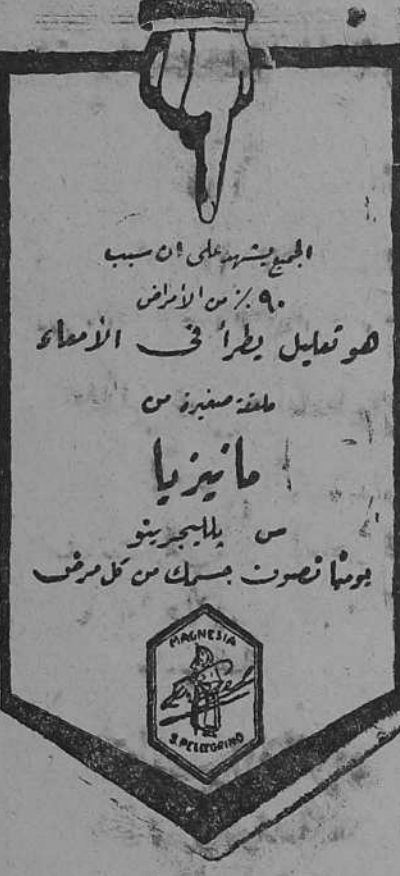 الجميع يشهد على ان سبب
٩٠ ٪ من الأمراض
هو تعليل يطرأ فى الأمعاء
ملعقة صغيرة من
مانيزيا
س پلليجرينو
يوميًا تصون جسمك من كل مرض
MAGNESIA
S.PELLEGRINO